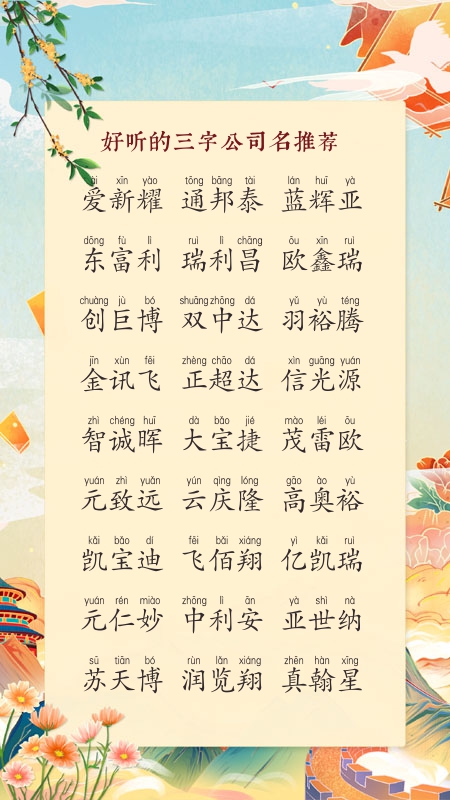 好听的三字公司名推荐
ài xīn yào tōng bāng tài lán huī yà
爱新耀 通邦泰 蓝辉亚
dōng fù lì ruì lì chāng ōu xīn ruì
东富利 瑞利昌 欧鑫瑞
chuàng jù bó shuāng zhōng dá yǔ yù téng
创巨博 双中达 羽裕腾
jīn xùn fēi zhèng chāo dá xìn guāng yuán
金讯飞 正超达 信光源
zhì chéng huī dà bǎo jié mào léi ōu
智诚晖 大宝捷 茂雷欧
yuán zhì yuǎn yún qìng lóng gāo ào yù
元致远 云庆隆 高奥裕
kǎi bǎo dí fēi bǎi xiáng yì kǎi ruì
凯宝迪 飞佰翔 亿凯瑞
yuán rén miào zhōng lì ān yà shì nà
元仁妙 中利安 亚世纳
sū tiān bó rùn lǎn xiáng zhēn hàn xīng
苏天博 润览翔 真翰星